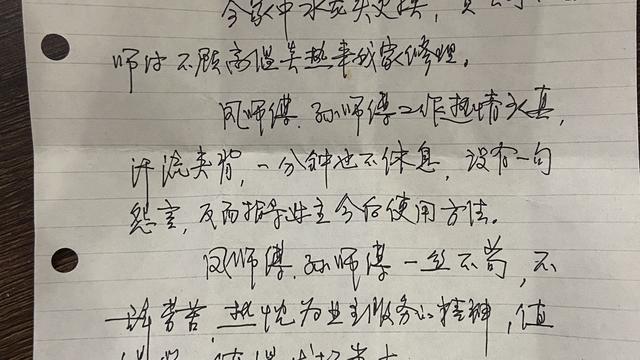 全家中水龙头更换，
师付不顾高温炎热来我家修理。
风师傅、孙师傅工作热情认真，
汗流夹背，一分钟也不休息，没有一句
怨言，反而指导业主今后使用方法。
风师傅、孙师傅一丝不苟，不
辞劳苦，热忱为业主服务的精神，值